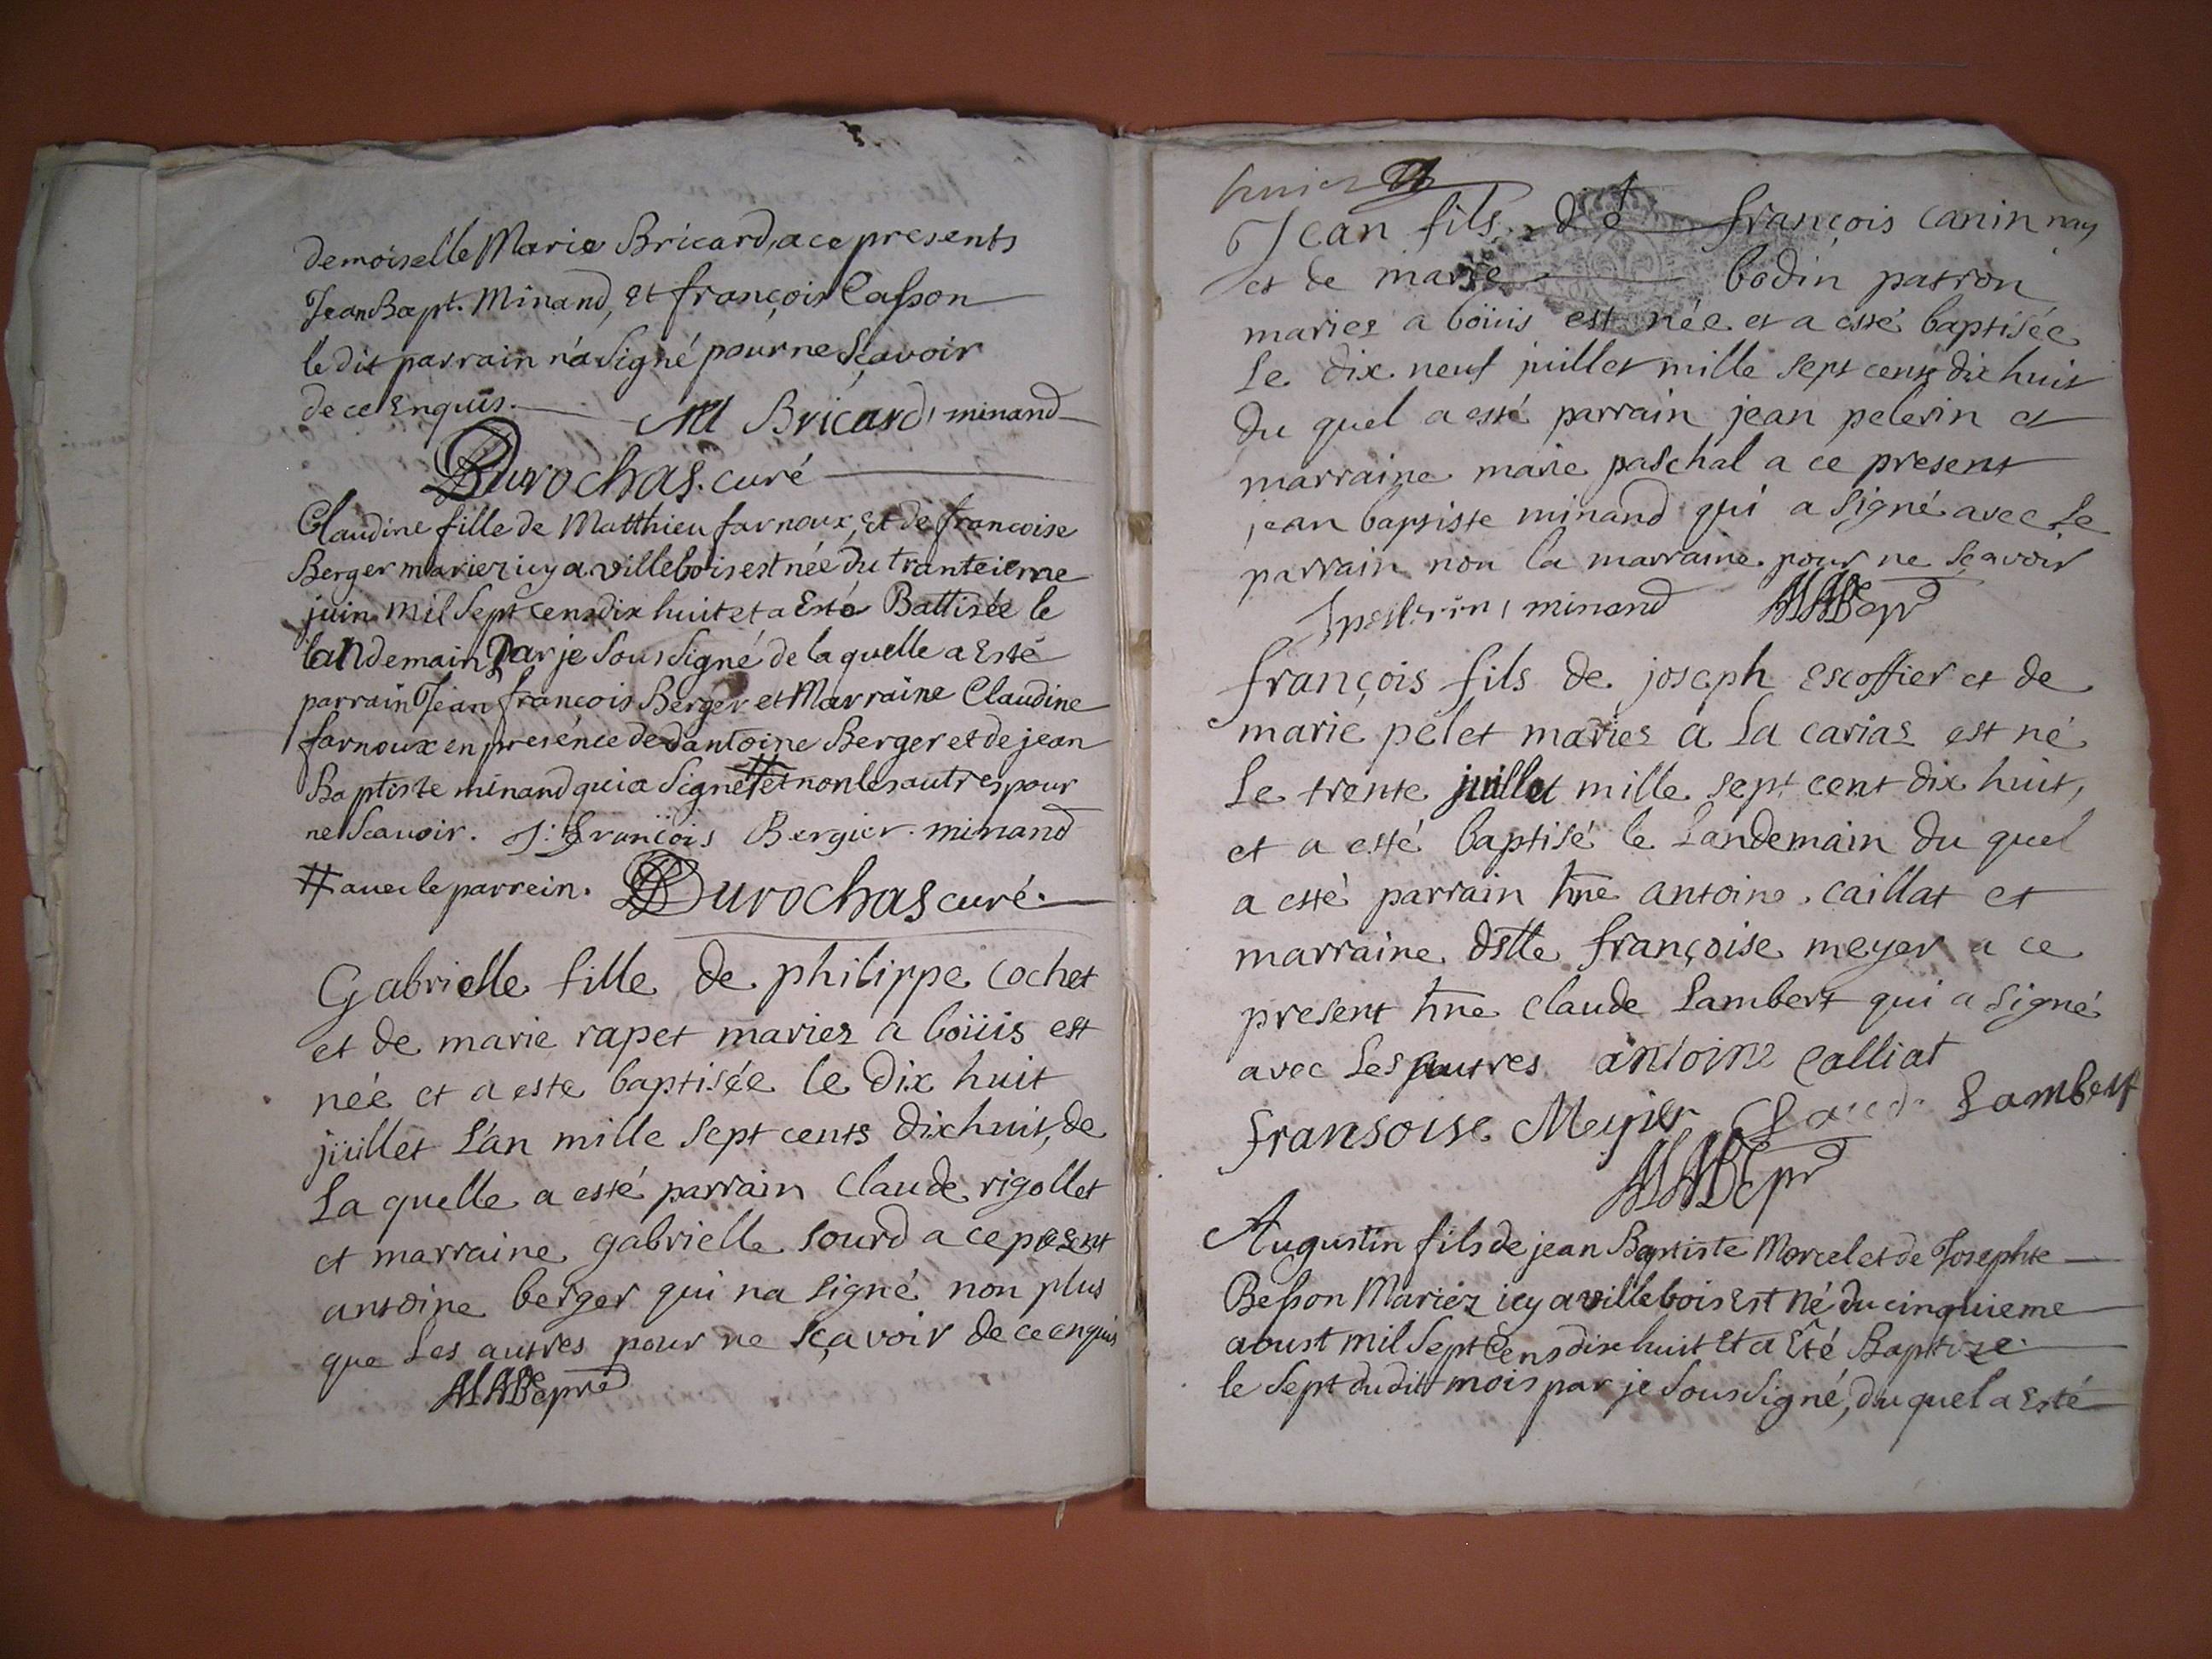 demoiselle Marie Bricard, a ce presents
Jean Bapt. Minand, et françois Casson
le dit parrain n'a signé pour ne sçavoir
de ce Enquis. M Bricard, minand
Durochas. curé
Claudine fille de Matthieu farnoux, et de francoise
Berger mariez icy a villebois est née du tranteieme
juin mil sept cens dix huit et a Esté Battisée le
landemain Par je sous signé de la quelle a Esté
parrain Jean francois Berger et Marraine Claudine
farnoux en presénce de d'antoine Berger et de jean
Baptiste minand qui a signé # et non les autres pour
ne scavoir. J: françois Bergier. minand
# avec le parrein. Durochas curé.
Gabrielle fille de philippe cochet
et de marie rapet mariez a boüis est
née et a este baptisée le dix huit
juillet l'an mille sept cents dix huit, de
La quelle a esté parrain claude rigollet
et marraine gabrielle sourd a ce present
antoine berger qui na signé non plus
que Les autres pour ne sçavoir de ce enquis
huict
Jean fils de françois canin
et de marie bodin patron
mariez a boüis est née et a esté baptisée
Le dix neuf juillet mille sept cents dix huit
du quel a esté parrain jean pelerin et
marraine marie paschal a ce present
jean baptiste minand qui a signé avec Le
parrain non la marraine pour ne sçavoir
J pellerin, minand
françois fils de joseph escoffier et de
marie pelet mariez a La cariaz est né
Le trente juillet mille sept cent dix huit,
et a esté baptisé le Landemain du quel
a esté parrain hne antoine caillat et
marraine dslle françoise meyer a ce
present hne claude Lambert qui a signé
avec Les autres antoine Calliat
fransoise Meyier Claude Lambert
Augustin fils de jean Baptiste Morcel et de Josephte
Besson Mariez icy a villebois est né du cinquieme
aoust mil sept Cens dix huit et a Eté Baptize
le sept dudit mois par je sous signé, du quel a Esté